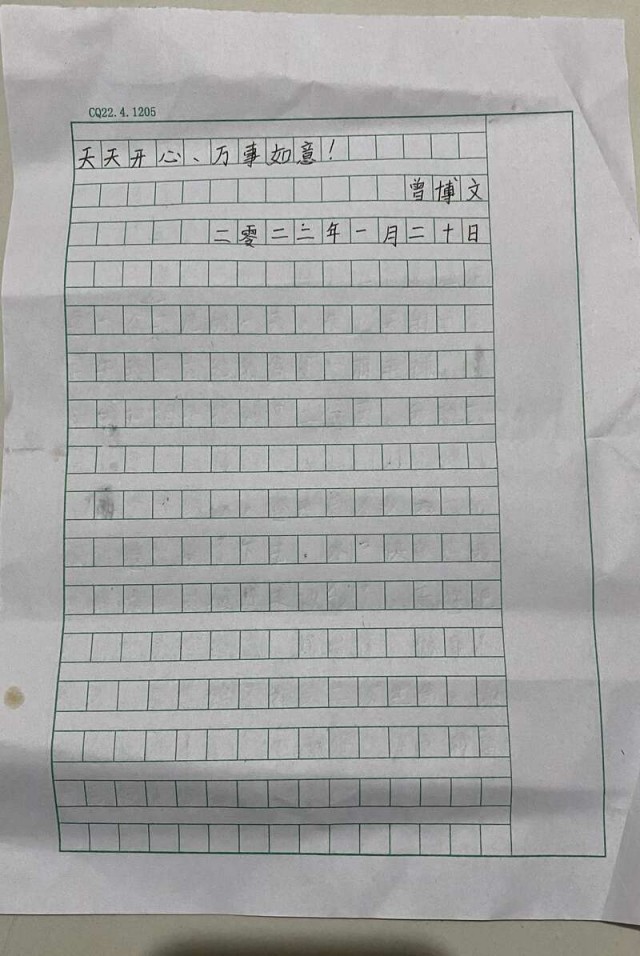 CQ22.4.1205
天天开心、万事如意!
曾博文
二零二二年一月二十日